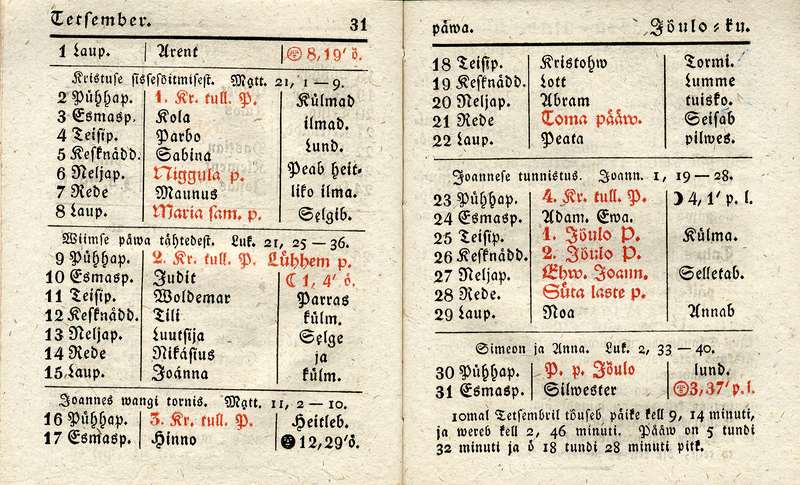 Tetsember. 31
1 Laup. Arent 8,19′ ö.
Kristuse sissesöitmisest. Matt. 21, 1—9.
2 Pühhap. 1. Kr. tull. P. Külmad
3 Esmasp. Kola ilmad.
4 Teisip. Parbo Lund.
5 Kesknädd. Sabina
6 Neljap. Niggula p. Peab heit-
7 Rede Maunus liko ilma.
8 Laup. Maria sam. p. Selgib.
Wiimse päwa tähtedest. Luk. 21, 25—36.
9 Pühhap. 2. Kr. tull. P. Lühhem p.
10 Esmasp. Judit ☾ 1, 4′ ö.
11 Teisip. Woldemar Parras
12 Kesknädd. Tili külm.
13 Neljap. Luutsija Selge
14 Rede Nikäsius ja
15 Laup. Joänna külm.
Joannes wangi tornis. Matt. 11, 2—10.
16 Pühhap. 3. Kr. tull. P. Heitleb.
17 Esmasp. Hinno 12,29′ö.
päwa. Jöulo-ku.
18 Teisip. Kristohw Tormi.
19 Kesknädd. Lott Lumme
20 Neljap. Abram tuisko.
21 Rede Toma pääw. Seisab
22 Laup. Peata pilwes.
Joannese tunnistus. Joann. 1, 19—28.
23 Pühhap. 4. Kr. tull. P. ☽ 4, 1′ p. l.
24 Esmasp. Adam. Ewa.
25 Teisip. 1. Jöulo P. Külma.
26 Kesknädd. 2. Jöulo P.
27 Neljap. Ehw. Joann. Selletab.
28 Rede. Süta laste p.
29 Laup. Noa Annab
Simeon ja Anna. Luk. 2, 33—40.
30 Pühhap. P. p. Jöulo lund.
31 Esmasp. Silwester 3,37′ p. l.
10mal Tetsembril töuseb päike kell 9, 14 minuti,
ja wereb kell 2, 46 minuti. Pääw on 5 tundi
32 minuti ja ö 18 tundi 28 minuti pitk.